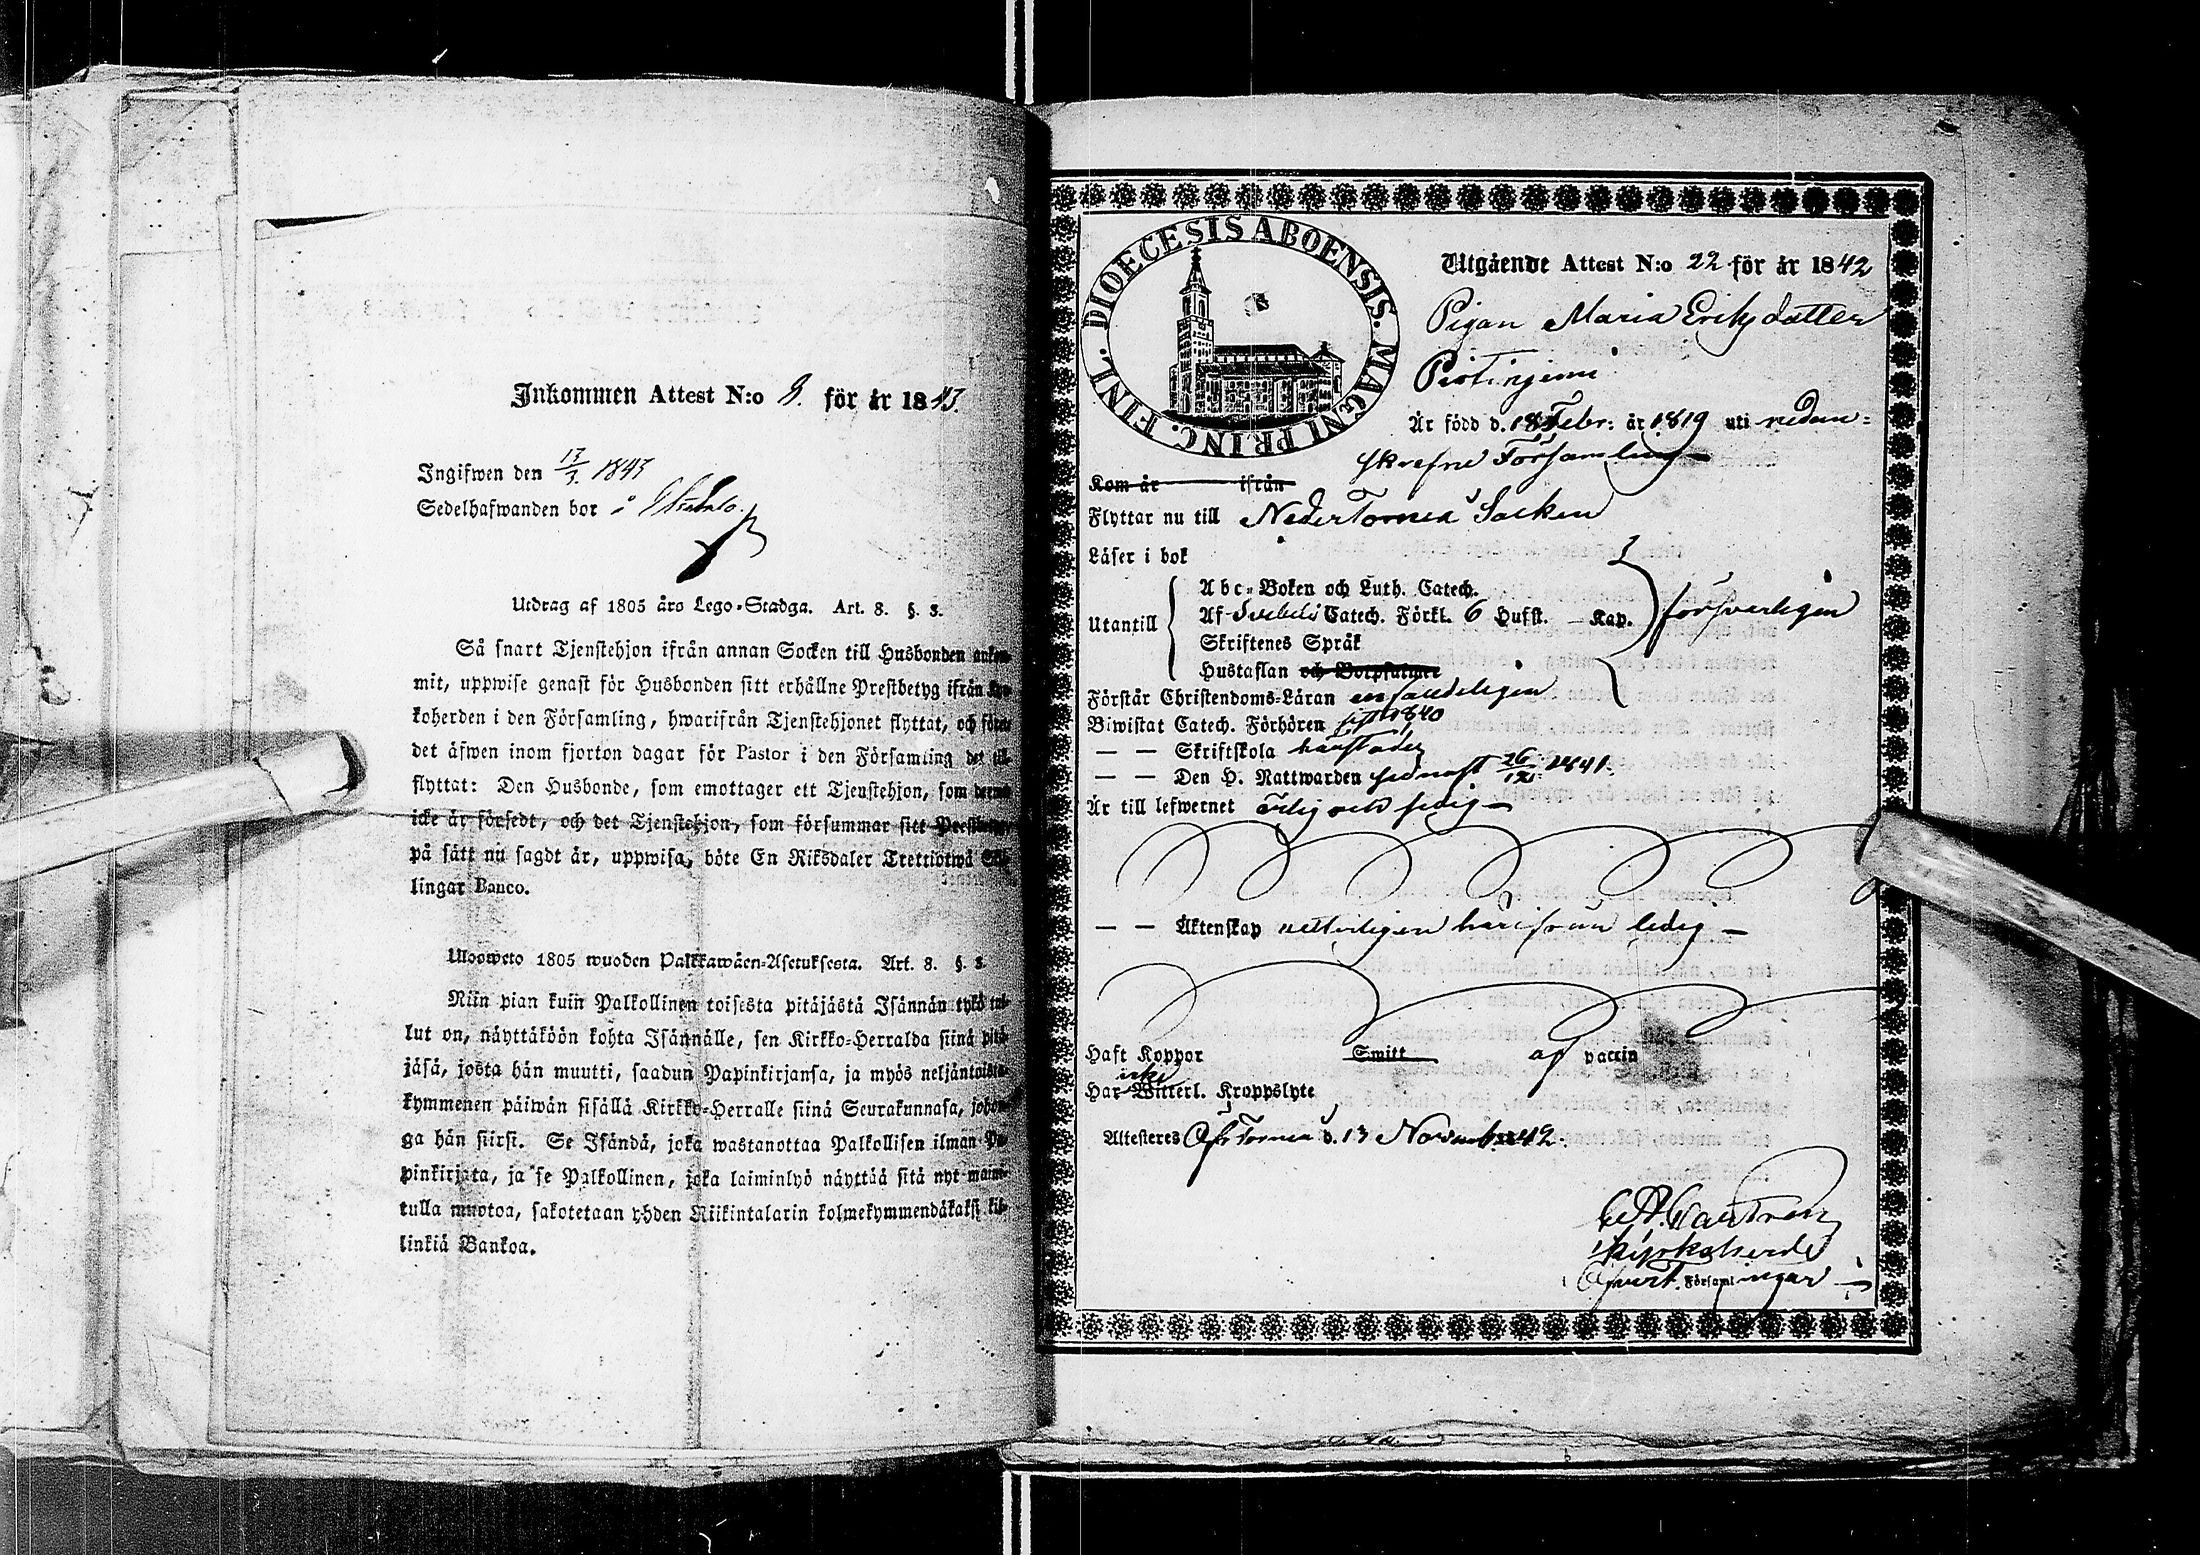 Inkommen Attest N:o 8. för år 1843.
Ingifwen den 13/3. 1843
Sedelhafwanden bor i
Utdrag af 1805 års Lego-Stadga. Art. 8. §. 3.
Så snart Tjenstehjon ifrån annan Socken till Husbonden ankom-
mit, uppwise genast för Husbonden sitt erhållne Prestbetyg ifrån Kyr-
koherden i den Församling, hwarifrån Tjenstehjonet flyttat, och förete
det äfwen inom fjorton dagar för Pastor i den Församling det till-
flyttat: Den Husbonde, som emottager ett Tjenstehjon, som dermed
icke är försedt, och det Tjenstehjon, som försummar sitt Prestbetyg,
på sätt nu sagdt är, uppwisa, böte En Riksdaler Trettiotwå Skil-
lingar Banco.
Ulosweto 1805 wuoden Palkkawäen-Asetuksesta. Art. 8. §. 3.
Niin pian kuin Palkollinen toisesta pitäjästä Isännän tykö tul-
lut on, näyttäköön kohta Isännälle, sen Kirkko-Herralda siinä pitä-
jäsä, josta hän muutti, saadun Papinkirjansa, ja myös neljäntoista-
kymmenen päiwän sisällä Kirkko-Herralle siinä Seurakunnasa, johon-
ga hän siirsi. Se Isändä, joka wastanottaa Palkollisen ilman Pa-
pinkirjata, ja se Palkollinen, joka laiminlyö näyttää sitä nyt maini-
tulla muotoa, sakotetaan yhden Riikintalarin kolmekymmendäkaksi kil-
linkiä Bankoa.
DIOECESIS ABOENSIS. MAGNI PRINC. FINL.
Utgående Attest N:o 22 för år 1842
Pigan Maria Eriksdatter
Är född d. 18 Febr: år 1819 uti nedan=
skrefne Församling
Kom år ifrån
Flyttar nu till NederTorneå Socken
Läser i bok
Abc-Boken och Luth. Catech.
Utantill Af Svebelii Catech. Förkl. 6 Hufst. – Kap. försvarligen
Skriftenes Språk
Hustaflan och Botpsalmer
Förstår Christendoms-Läran
Biwistat Catech. Förhören sist 1840
— — Skriftskola härstädes
— — Den H. Nattwarden sednast 26/12 1841.
Är till lefwernet ärlig och sedig
— — Äktenskap vetterligen härifrån ledig
Haft Koppor Smitt af vaccin
Har icke Witterl. Kroppslyte
Attesteres ÖfTorneå d. 13 November 1842.
Kyrkoherde
Öfvert. Församlingar